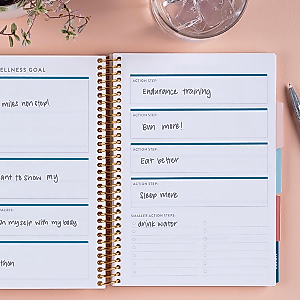 ELLNESS GOAL
miles non stop!
ant to show my
an myself with my body
thon
ACTION STEP:
Endurance training
ACTION STEP:
Run more!
ACTION STEP:
Eat better
ACTION STEP:
Sleep more
SMALLER ACTION STEPS:
drink water